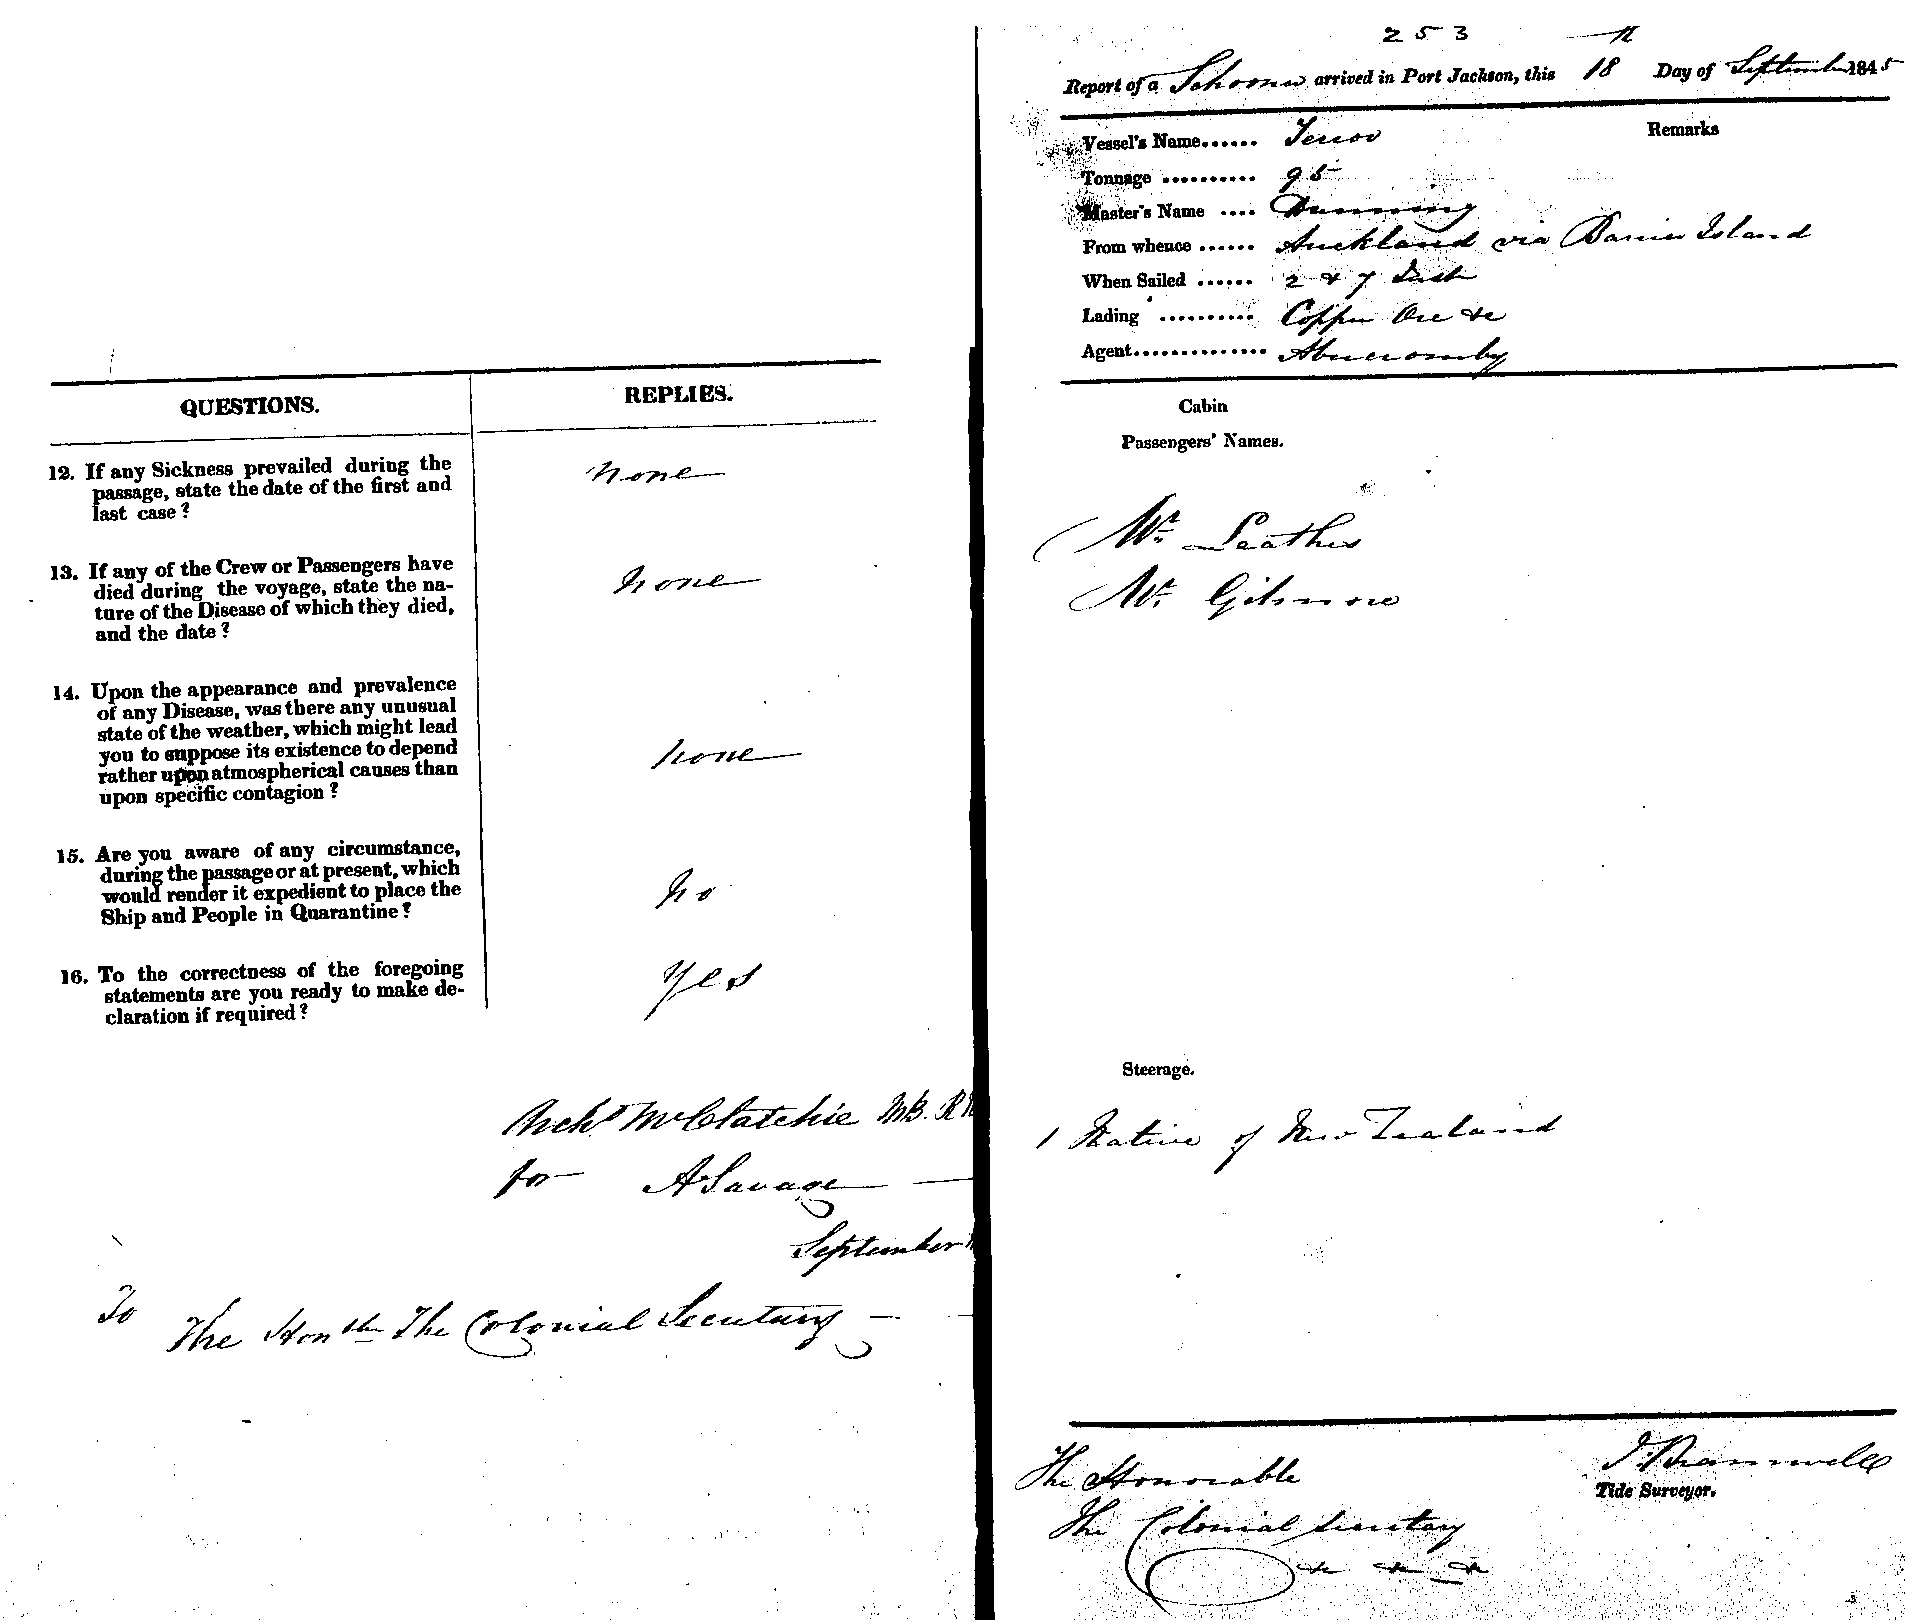 QUESTIONS.
REPLIES.
12. If any Sickness prevailed during the
passage, state the date of the first and
last case?
none
13. If any of the Crew or Passengers have
died during the voyage, state the na-
ture of the Disease of which they died,
and the date?
none
14. Upon the appearance and prevalence
of any Disease, was there any unusual
state of the weather, which might lead
you to suppose its existence to depend
rather upon atmospherical causes than
upon specific contagion?
none
15. Are you aware of any circumstance,
during the passage or at present, which
would render it expedient to place the
Ship and People in Quarantine?
No
16. To the correctness of the foregoing
statements are you ready to make de-
claration if required?
Yes
Archd McClatchie MB. R
for A Savage
September
To
The Honble The Colonial Secretary
253
Report of a Schooner arrived in Port Jackson, this 18th Day of September 1845
Vessel's Name...... Terror
Remarks
Tonnage .......... 95
Master's Name .... Dunning
From whence ...... Auckland via Barrier Island
When Sailed ...... 2 & 7 Inst
Lading .......... Copper Ore &c
Agent.............. Abercromby
Cabin
Passengers' Names.
Mr. Leather
Mr. Gilmore
Steerage.
1 Native of New Zealand
The Honorable
The Colonial Secretary
&c &c &c
J. Bramwell
Tide Surveyor.